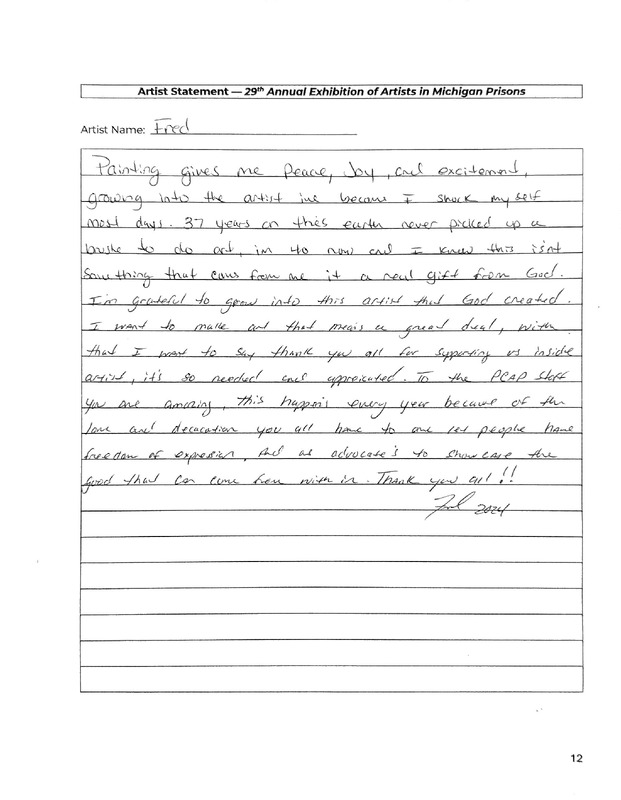 Artist Statement — 29th Annual Exhibition of Artists in Michigan Prisons
Artist Name: Fred
Painting gives me Peace, Joy, and excitement,
growing into the artist ive become I shock my self
most days. 37 years on this earth never picked up a
brushe to do art, im 40 now and I know this isnt
something that cams from me it a real gift from God.
I'm grateful to grow into this artist that God created.
I want to make art that means a great deal, with
that I want to say thank you all for supporting us inside
artist, it's so needed and appreciated. To the PCAP staff
you are amazing, this happen's every year because of the
love and you all have to let people have
freedom of expression, And as advocate's to showcase the
good that can come from with in. Thank you all!!
Fred 2024
12